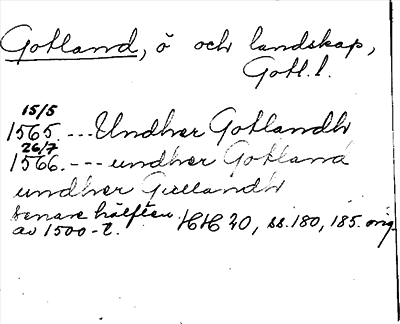 Gotland, ö och landskap,
Gotl. l.
15/5
1565. --- Undher Gotlandh
26/7
1566. --- undher Gotland
undher Gullandh
senare hälften
av 1500-t. HH 20, ss. 180, 185. orig.